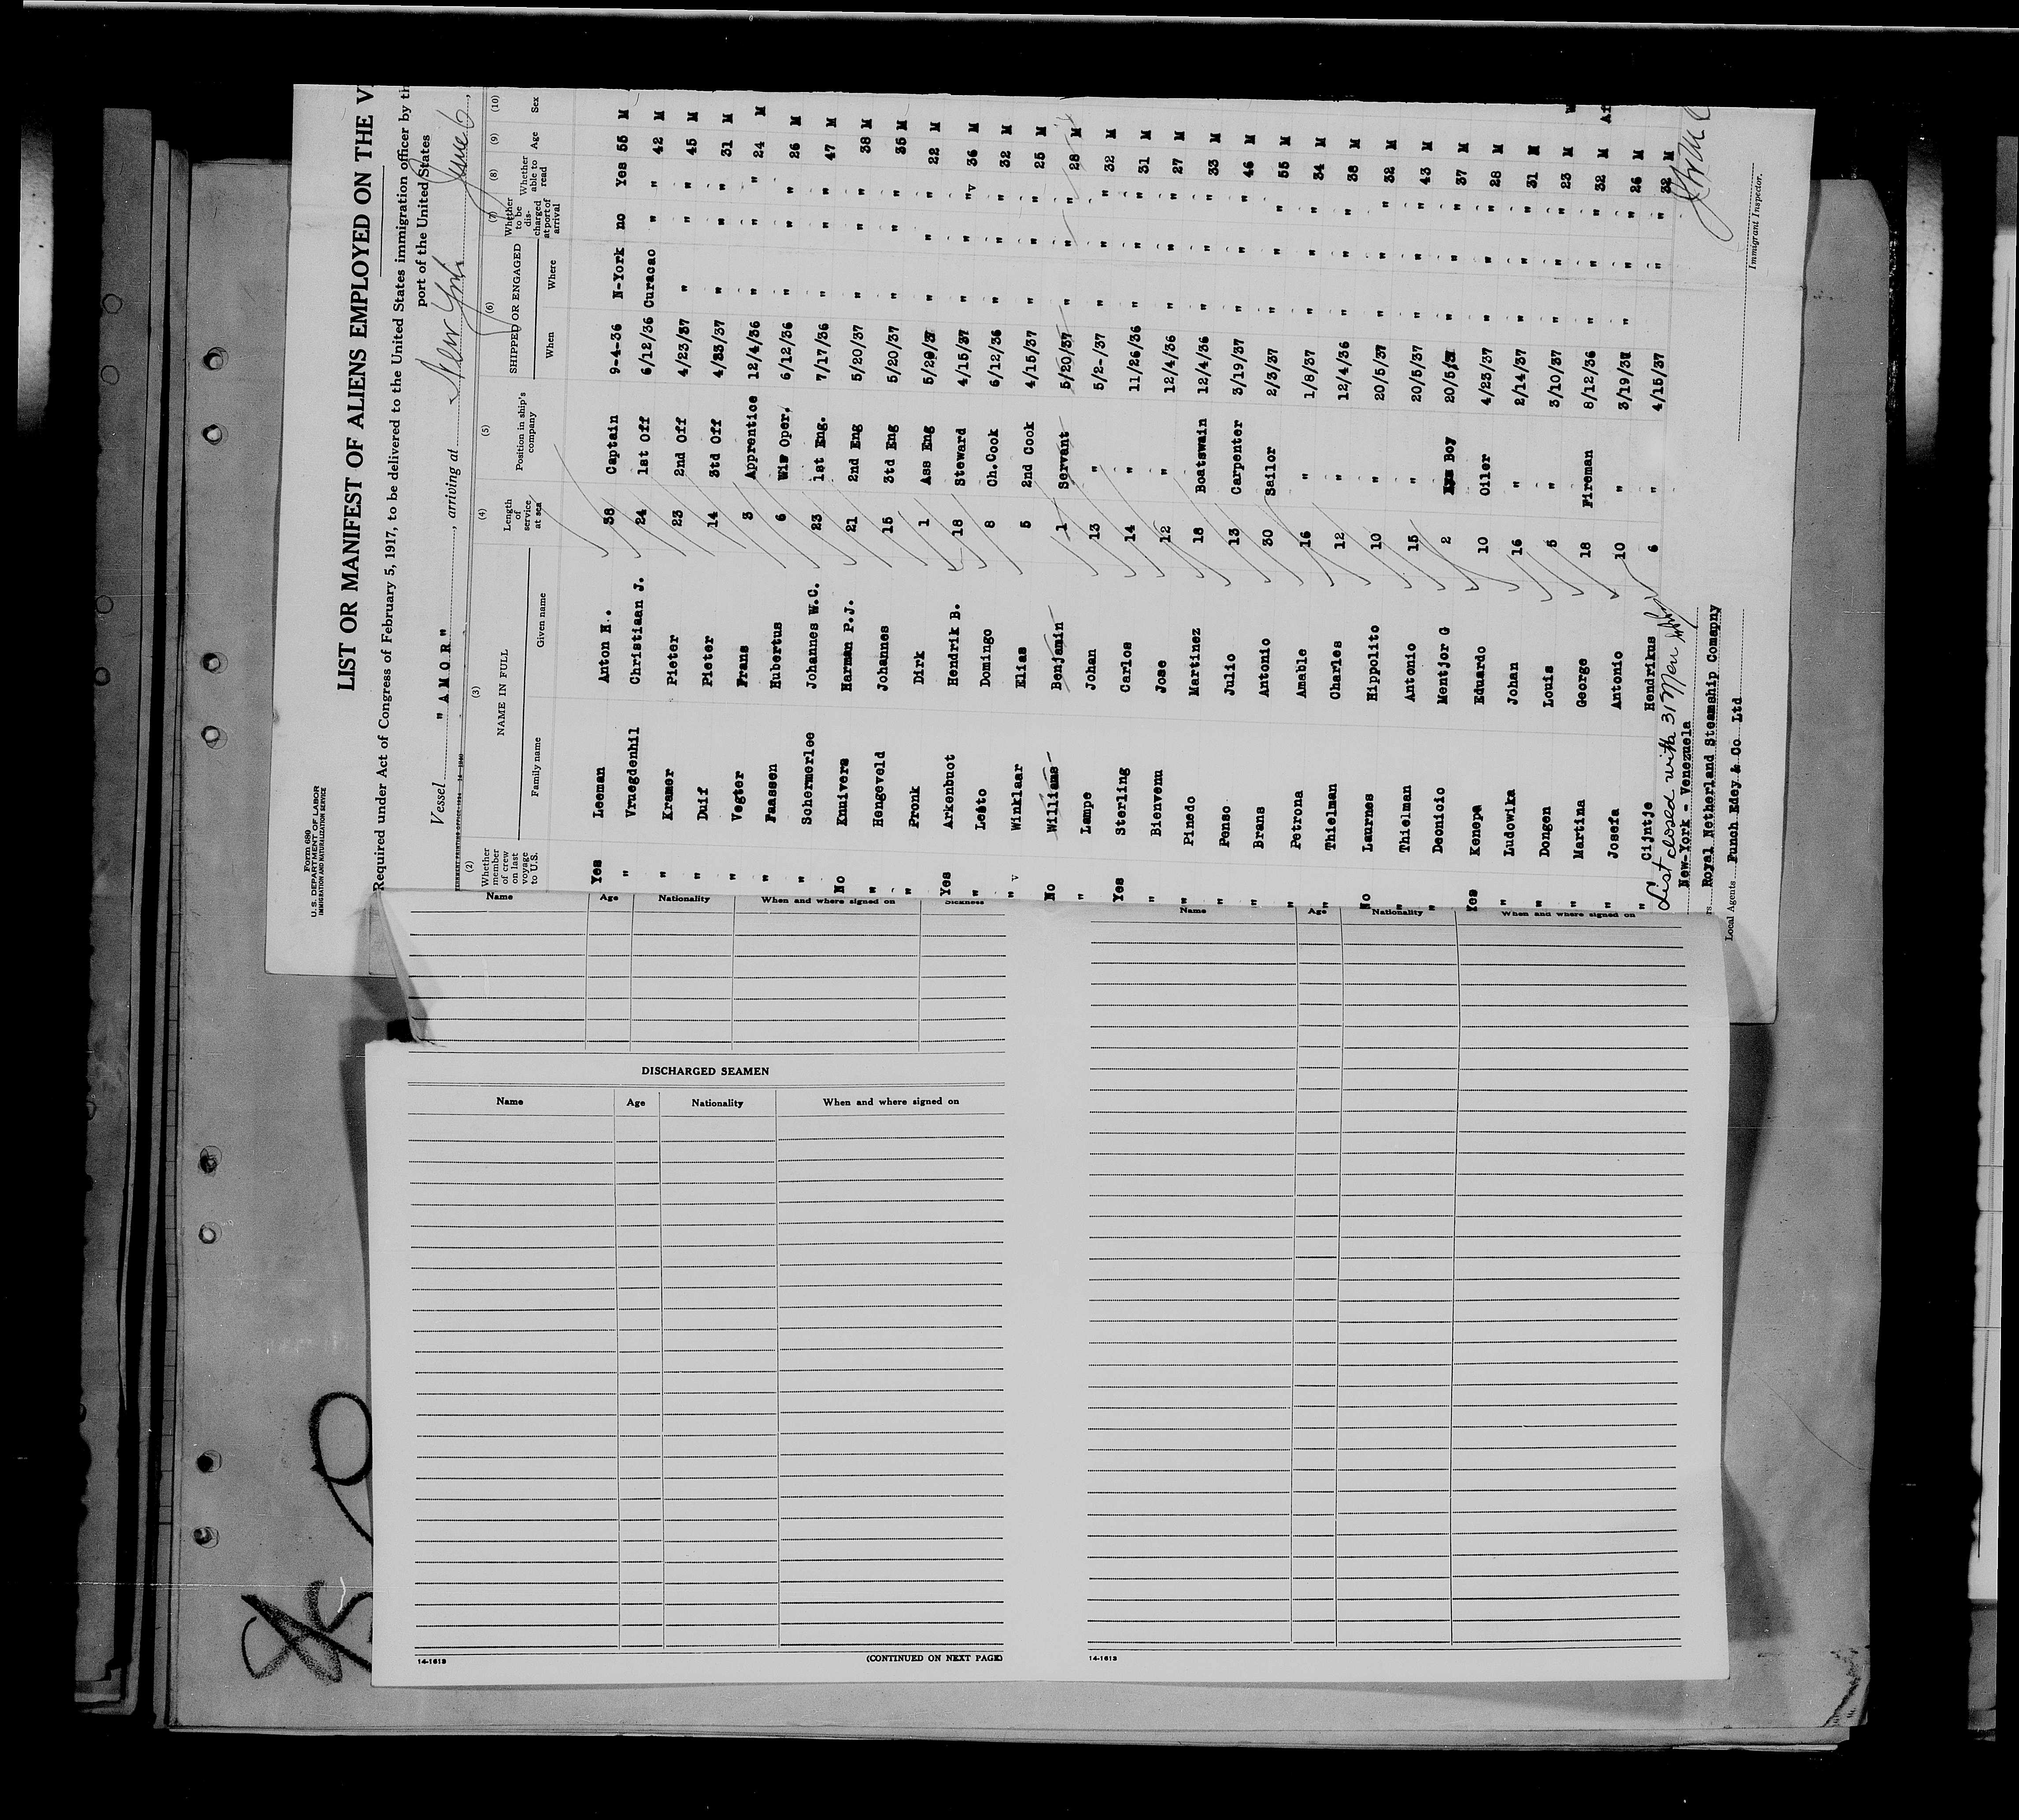 Form 689
U. S. DEPARTMENT OF LABOR
IMMIGRATION AND NATURALIZATION SERVICE
LIST OR MANIFEST OF ALIENS EMPLOYED ON THE V
Required under Act of Congress of February 5, 1917, to be delivered to the United States immigration officer by th
port of the United States
Vessel " A M O R ", arriving at New York June 6,
(2) (3) (4) (5) (6) (7) (8) (9) (10)
Whether member of crew on last voyage to U.S. NAME IN FULL Length of service at sea Position in ship's company SHIPPED OR ENGAGED Whether to be discharged at port of arrival Whether able to read Age Sex
Family name Given name When Where
Yes Leeman Anton H.. 38 Captain 9-4-36 N-York no Yes 55 M
" Vruegdenhil Christiaan J. 24 1st Off 6/12/36 Curacao " " 42 M
" Kramer Pieter 23 2nd Off 4/23/37 " " " 45 M
" Duif Pieter 14 3td Off 4/23/37 " " " 31 M
" Vegter Frans 3 Apprentice 12/4/36 " " " 24 M
" Faassen Hubertus 6 Oper. 6/12/36 " " " 26 M
" Schermerlee Johannes W.C. 23 1st Eng. 7/17/36 " " " 47 M
No Knuivers Harman P.J. 21 2nd Eng 5/20/37 " " " 38 M
" Hengeveld Johannes 15 3td Eng 5/20/37 " " " 35 M
" Pronk Dirk 1 Ass Eng 5/20/37 " " " 22 M
Yes Arkenbuot Hendrik B. 18 Steward 4/15/37 " " "v 36 M
" Leito Domingo 8 Ch.Cook 6/12/36 " " " 32 M
" v Winklaar Elias 5 2nd Cook 4/15/37 " " " 25 M
No Williams Benjamin 1 Servant 5/20/37 " " " 28 M
" Lampe Johan 13 " 5/2-/37 " " " 32 M
Yes Sterling Carlos 14 " 11/26/36 " " " 31 M
" Bienvenu Jose 12 " 12/4/36 " " " 27 M
" Pinedo Martinez 18 Boatswain 12/4/36 " " " 33 M
" Penso Julio 13 Carpenter 3/19/37 " " " 46 M
" Brans Antonio 30 Sailor 2/3/37 " " " 55 M
" Petrona Amable 16 " 1/8/37 " " " 34 M
" Thielman Charles 12 " 12/4/36 " " " 38 M
No Laurnes Hippolito 10 " 20/5/37 " " " 32 M
" Thielman Antonio 15 " 20/5/37 " " " 43 M
" Deonicio Mentjor G 2 Boy 20/5/37 " " " 37 M
Yes Kenepa Eduardo 10 Oiler 4/23/37 " " " 28 M
" Ludowika Johan 16 " 2/14/37 " " " 31 M
" Dongen Louis 5 " 3/10/37 " " " 23 M
" Martina George 18 Fireman 8/12/36 " " " 32 M
" Josefa Antonio 10 " 3/19/37 " " " 26 M
" Cijntje Hendrikus 6 " 4/15/37 " " 32 M
List closed with 31 Men
New-York - Venezuela
Royal Netherland Steamship Comapny
Local Agents Funch Edey & Co Ltd
Immigrant Inspector.
Name Age Nationality When and where signed on Sickness
DISCHARGED SEAMEN
Name Age Nationality When and where signed on
14-1613
(CONTINUED ON NEXT PAGE)
Name Age Nationality When and where signed on
14-1613